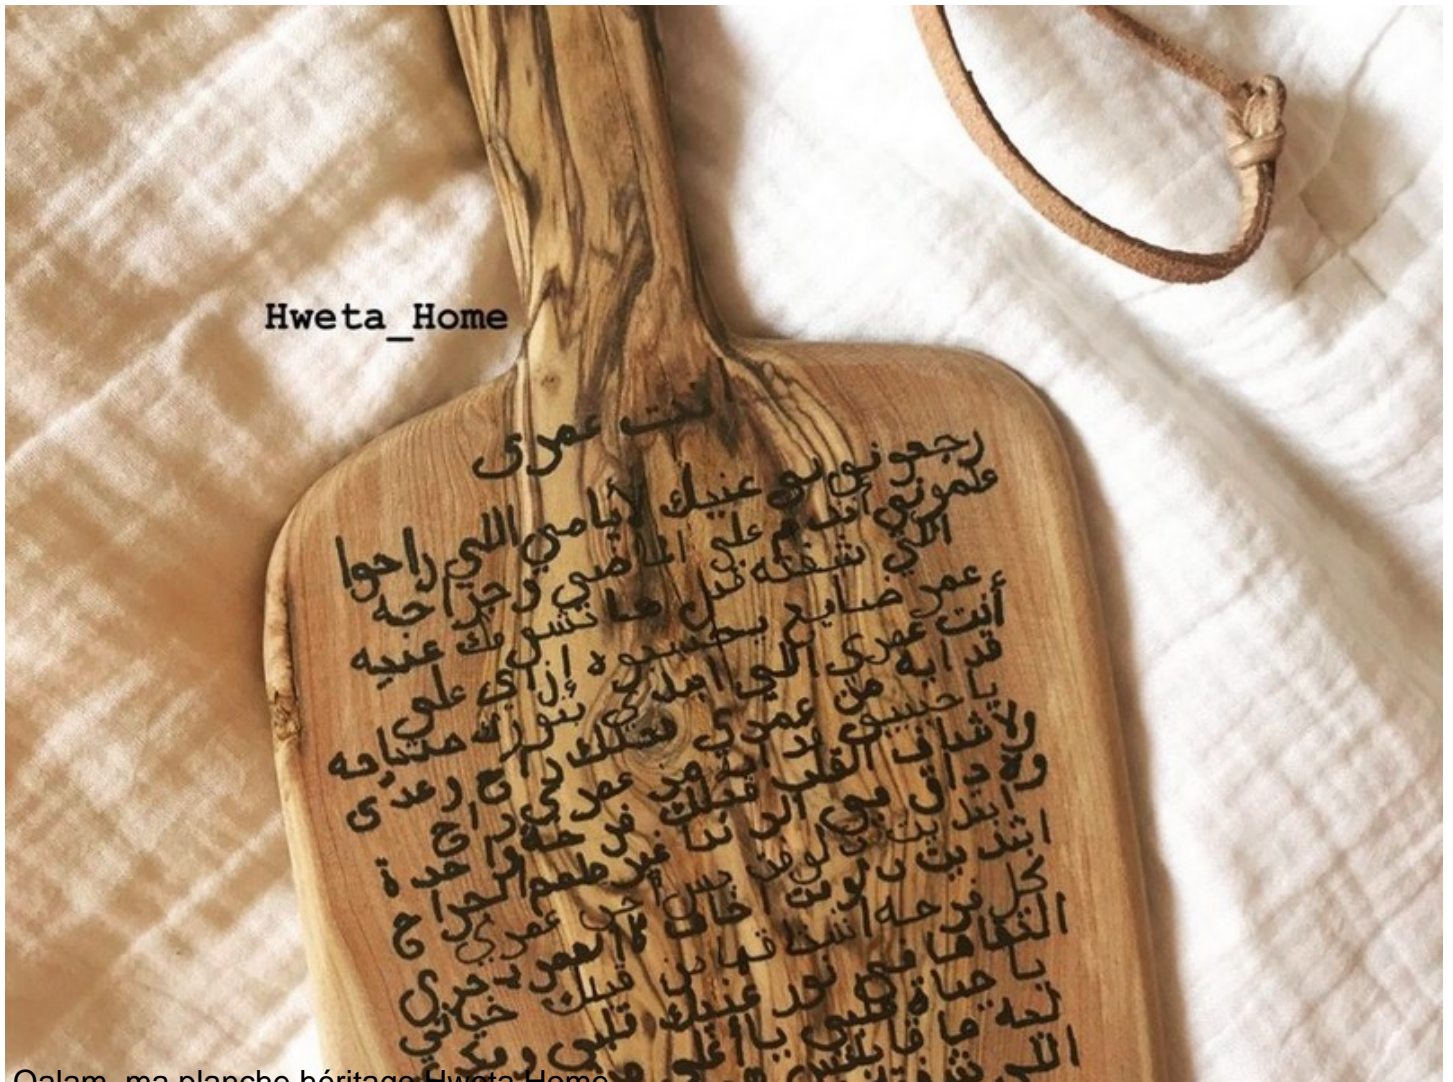 Hweta_Home
نت عمرى
رجعوني عنيك لأيامي اللي راحوا
علموني أندم على الماضي وجراحه
اللي شفته قبل ما تشوفك عنيه
عمر ضايع يحسبوه إزاي علي
أنت عمري اللي ابتدى بنورك صباحه
قد ايه من عمري قبلك راح وعدى
يا حبيبي قد ايه من عمري راح
ولا شاف القلب قبلك فرحه واحدة
ولا داق في الدنيا غير طعم الجراح
ابتديت دلوقت بس احب عمري
ابتديت دلوقت اخاف لا العمر يجري
كل فرحه اشتاقها من قبلك خيالي
التقاها في نور عنيك قلبي
يا حياة قلبي يا أغلى
ليه ما قابلنيش
اللي
Qalam, ma planche héritage Hweta Home